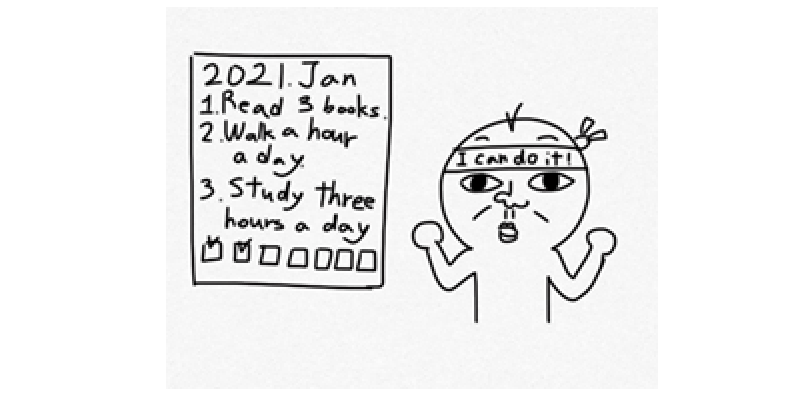 2021. Jan
1. Read 3 books.
2. Walk a hour
a day.
3. Study three
hours a day
I can do it!